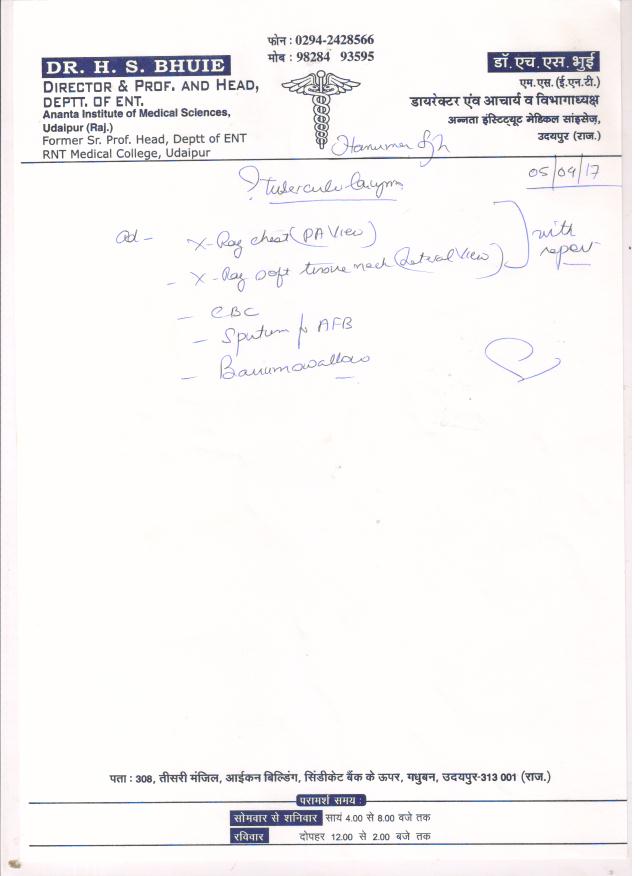 फोन : 0294-2428566
मोब : 98284 93595
DR. H. S. BHUIE
DIRECTOR & PROF. AND HEAD,
DEPTT. OF ENT.
Ananta Institute of Medical Sciences,
Udaipur (Raj.)
Former Sr. Prof. Head, Deptt of ENT
RNT Medical College, Udaipur
डॉ. एच. एस. भुई
एम.एस. (ई.एन.टी.)
डायरेक्टर एंव आचार्य व विभागाध्यक्ष
अनन्ता इंस्टिट्यूट मेडिकल सांइसेज,
उदयपुर (राज.)
05/09/17
X-Ray chest (PA View)
- X-Ray soft tissue neck (Lateral View)
with
report
- CBC
- Sputum for AFB
पता : 308, तीसरी मंजिल, आईकन बिल्डिंग, सिंडीकेट बैंक के ऊपर, मधुबन, उदयपुर-313 001 (राज.)
परामर्श समय :
सोमवार से शनिवार सायं 4.00 से 8.00 बजे तक
रविवार दोपहर 12.00 से 2.00 बजे तक